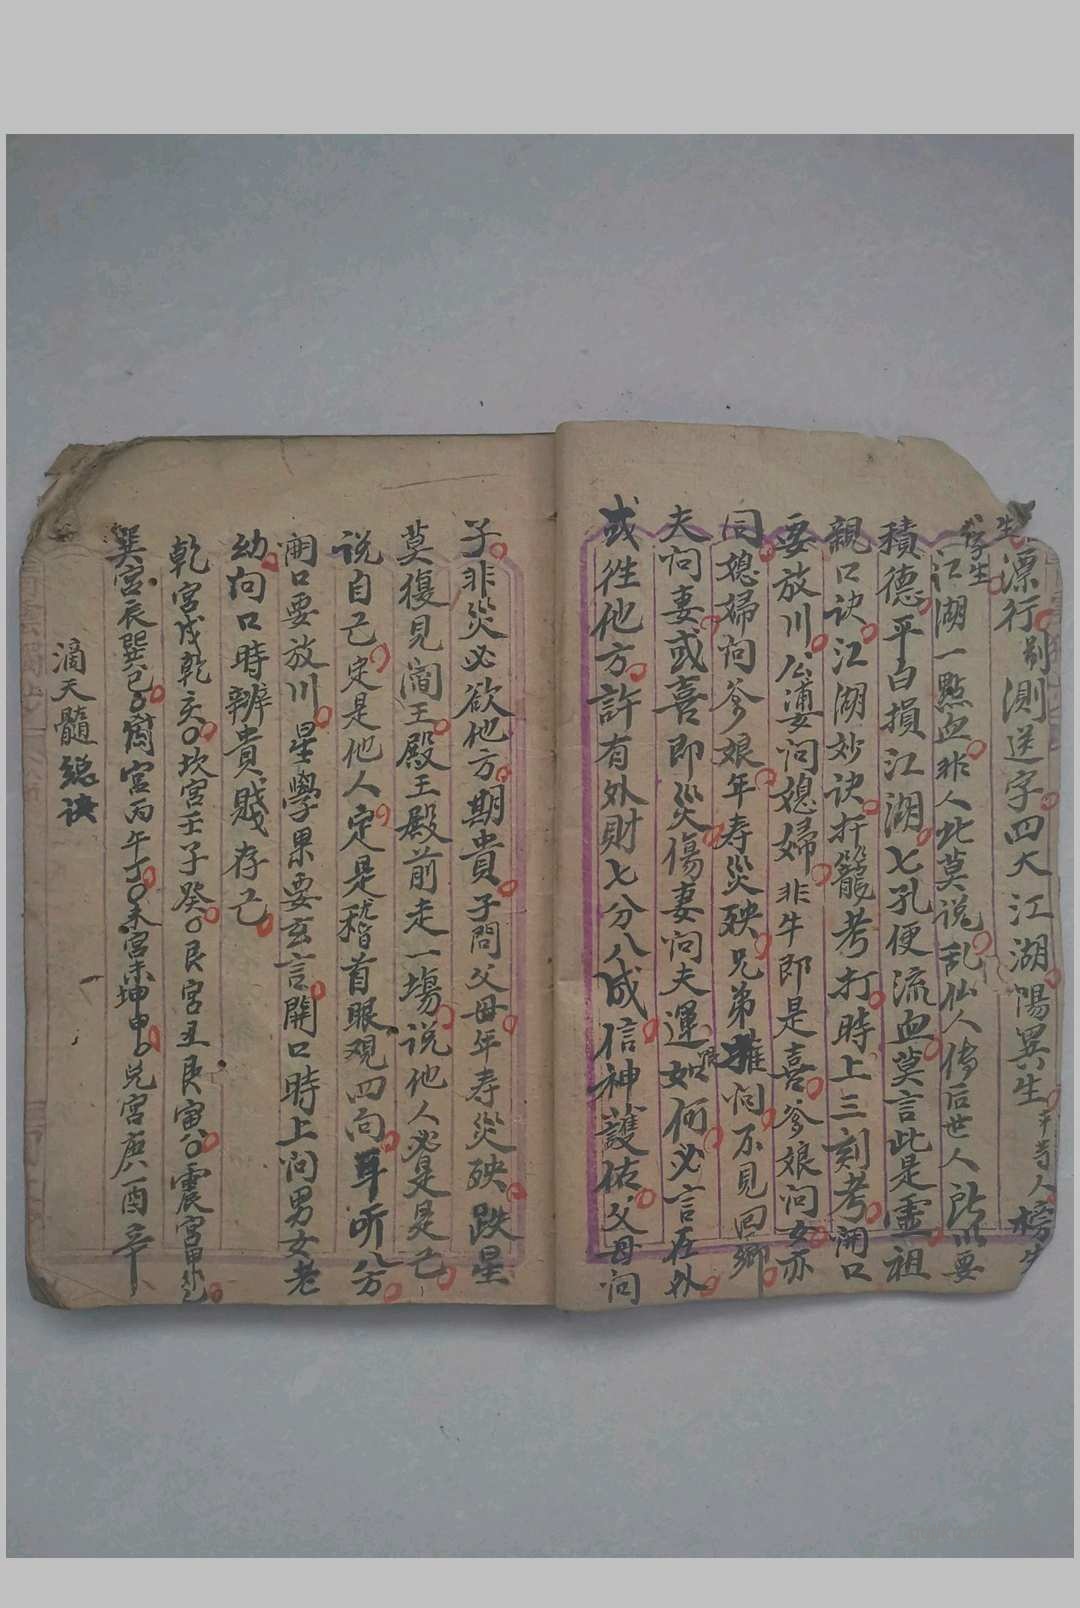 生
漂行剐测送字四大江湖陽異生 平等人榜生
侈生
江湖一點血非人此莫说乱仙人傳后世人所以要
積德平白損江湖七孔便流血莫言此是霊祖
親口诀江湖妙诀折籠考打時上三刻考開口
要放川公婆问媳婦非牛即是喜爹娘问女亦
同媳婦问爹娘年寿災殃兄弟摧问不見回鄉
夫问妻或喜即災傷妻问夫運如何必言在外
或徃他方許有外財七分八成信神護佑父母问
子非災必欲他方期貴子問父母年寿災殃跌星
莫復見阎王殿王殿前走一場说他人必是是己
说自己定是他人定是稽首眼观四向耳听八方
開口要放川星學果要玄言開口時上问男女老
幼向口時辨貴賤存己
乾宮戌乾亥坎宮壬子癸艮宮丑艮寅震宮甲卯乙
巽宮辰巽巳离宮丙午丁未宮未坤申兑宮庚酉辛
滴天髓總诀